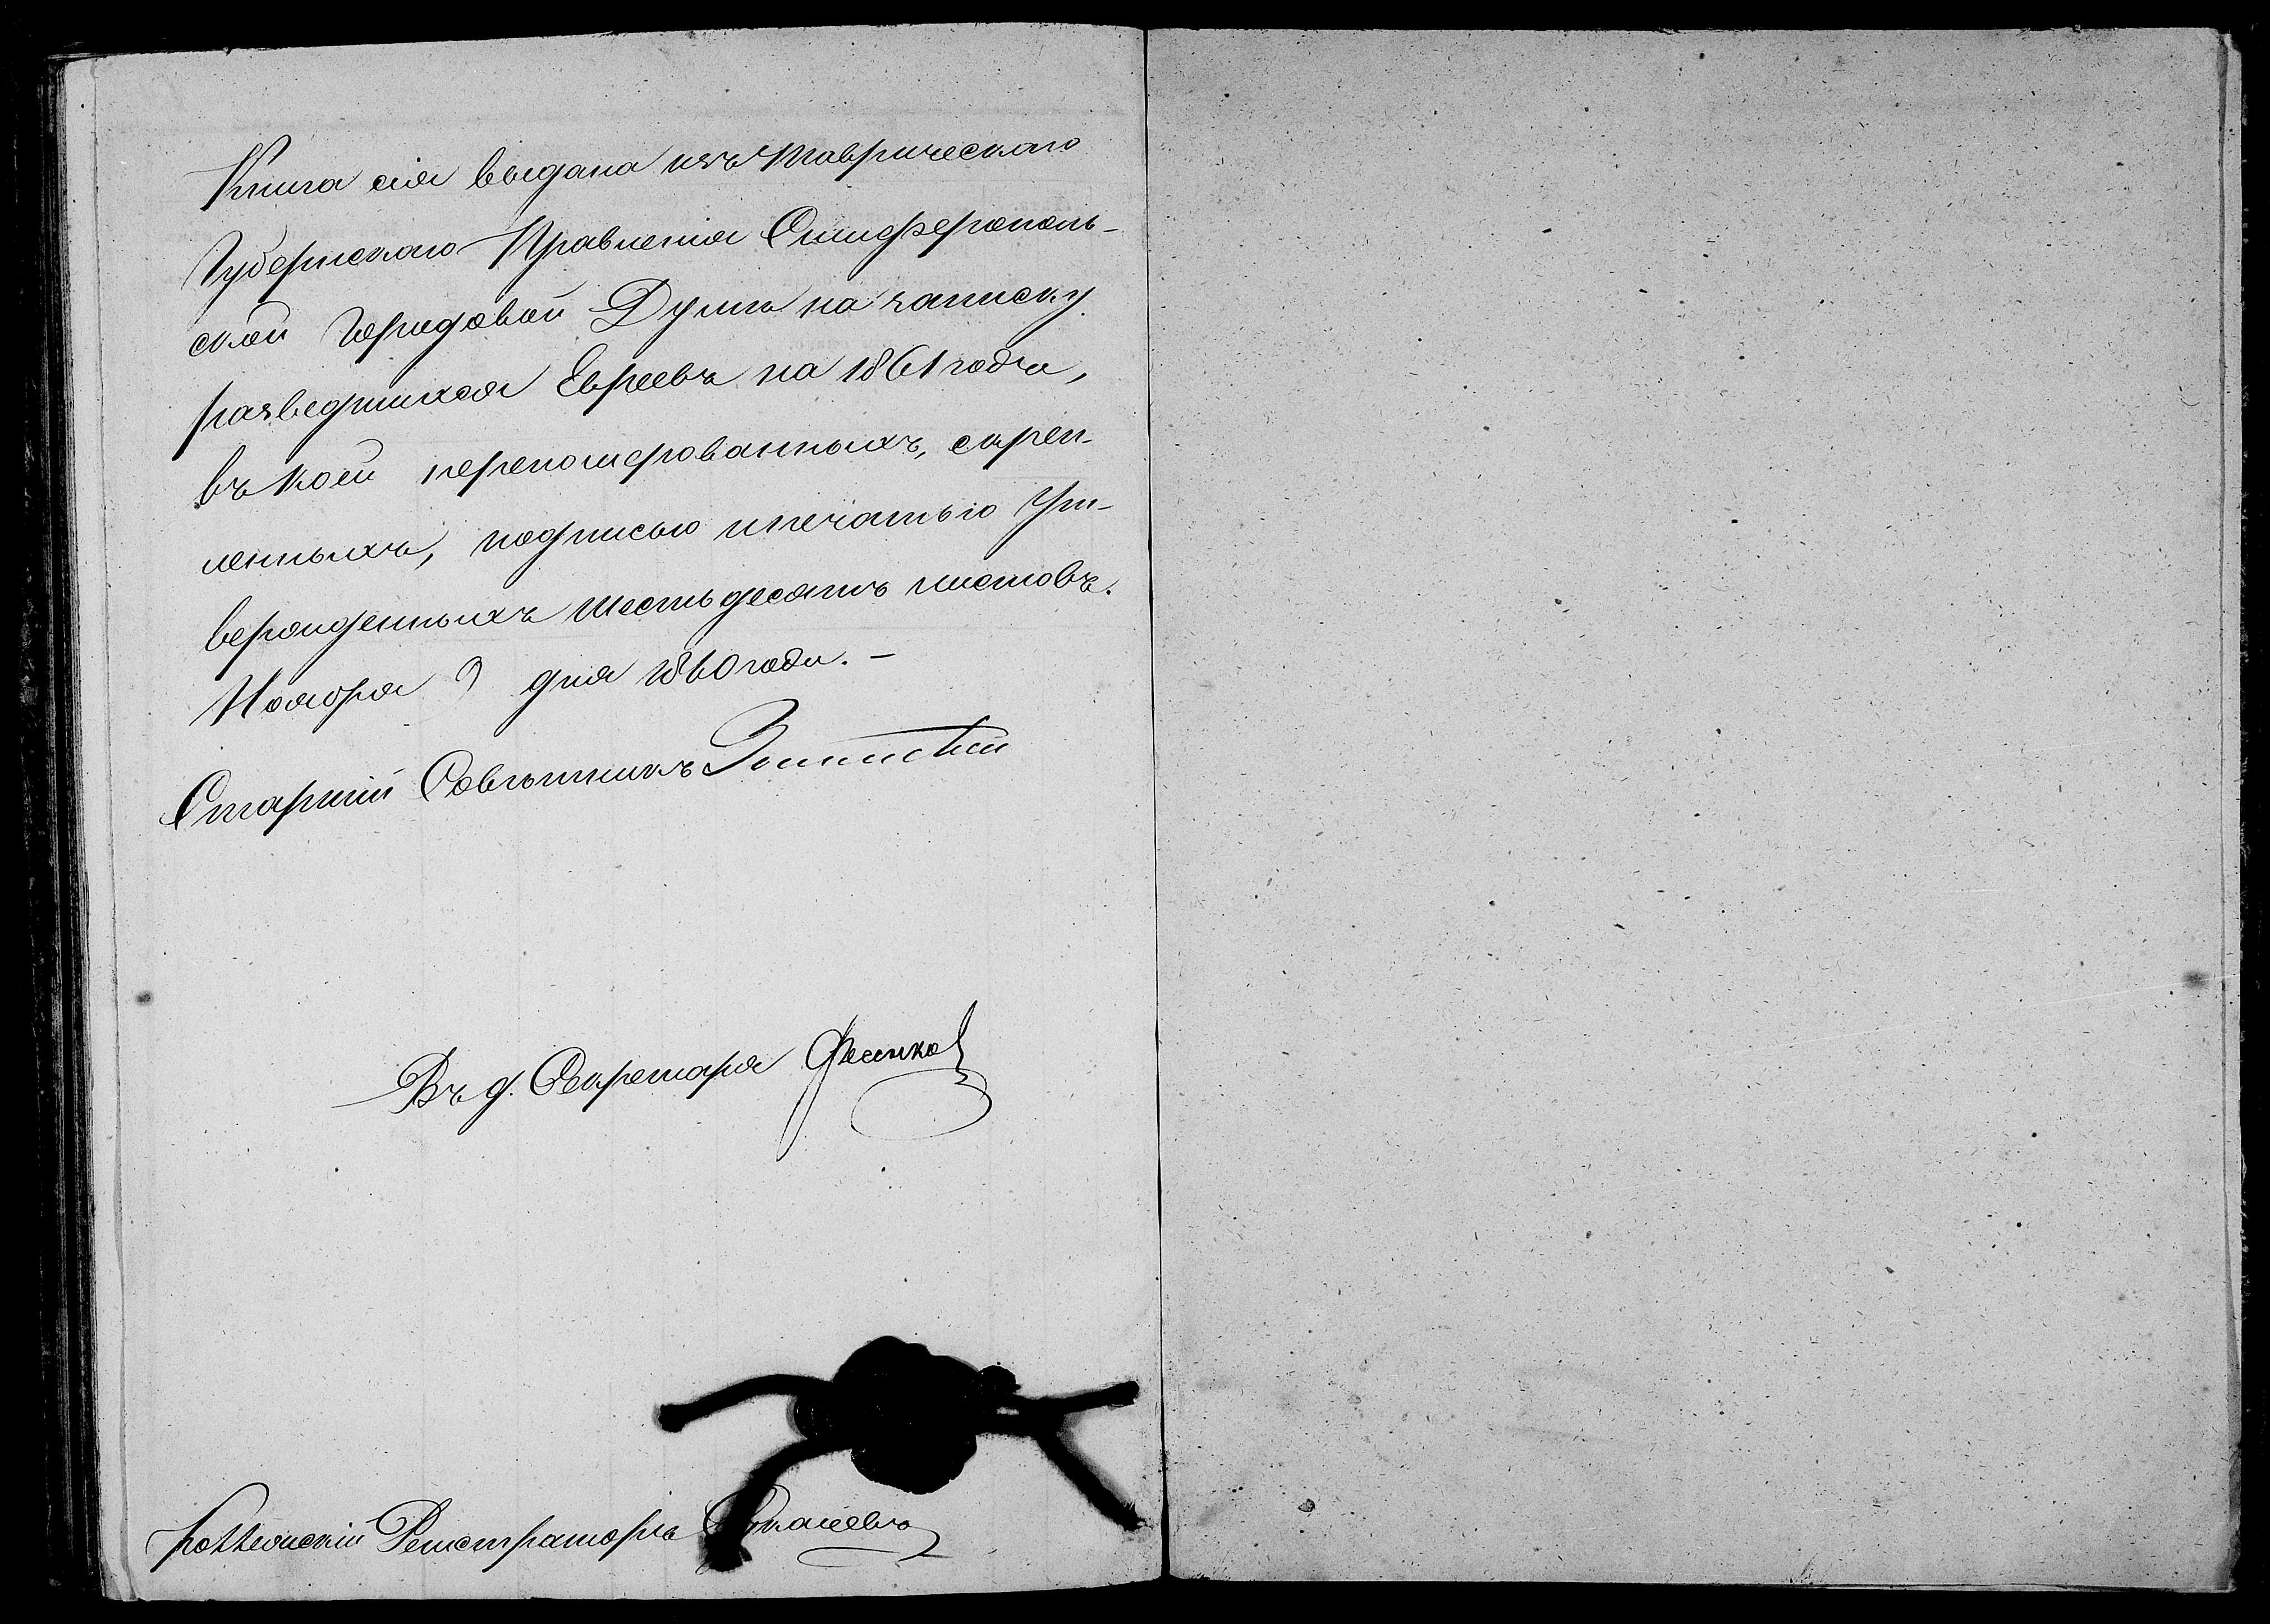 Книга сія выдана изъ Таврическаго
Губернскаго Правленія Симферополь-
ской Городовой Думѣ на записку
разведшихся Евреевъ на 1861 годъ,
въ коей перенумерованныхъ, скреп-
ленныхъ, подписью и печатью ут-
вержденныхъ шестьдесятъ листовъ.
Ноября 9 дня 1860 года. —
Старшій Совѣтникъ
Въ д. Секретаря Фесенко
Коллежскій Регистраторъ